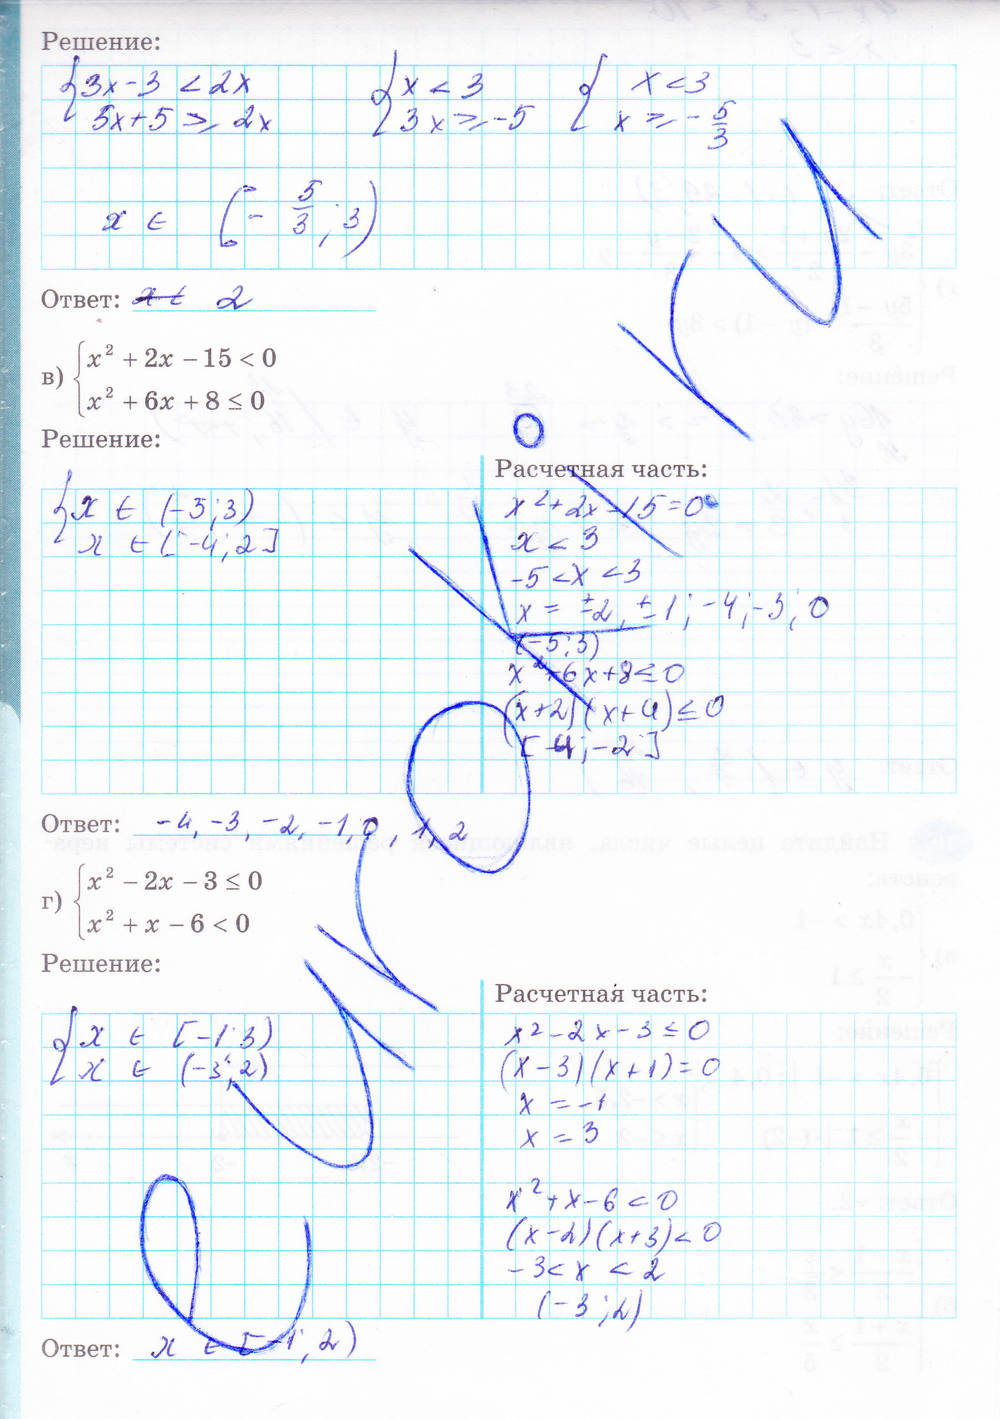 Решение:
{3x-3 < 2x {x < 3 { x < 3
5x+5 ≥ 2x 3x ≥ -5 x ≥ - 5/3
x ∈ [- 5/3 ; 3)
Ответ: x ∈ 2
в) {x² + 2x − 15 < 0
x² + 6x + 8 ≤ 0
Решение:
Расчетная часть:
{x ∈ (-5; 3)
x ∈ [-4; 2]
x²+2x-15=0
x < 3
-5 < x < 3
x = ±2, ±1; -4; -3; 0
(-5; 3)
x²+6x+8≤0
(x+2)(x+4)≤0
[-4; -2]
Ответ: -4, -3, -2, -1, 0, 1, 2
г) {x² − 2x − 3 ≤ 0
x² + x − 6 < 0
Решение:
Расчетная часть:
{x ∈ [-1; 3)
x ∈ (-3; 2)
x²-2x-3≤0
(x-3)(x+1)=0
x = -1
x = 3
x²+x-6<0
(x-2)(x+3)<0
-3<x<2
(-3; 2)
Ответ: x ∈ [-1; 2)